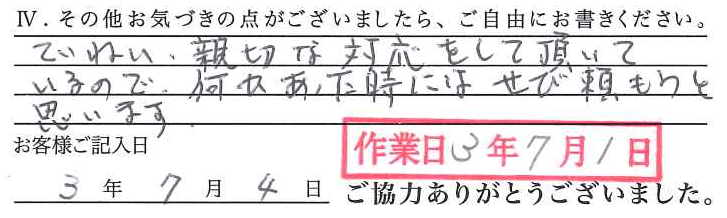 Ⅳ．その他お気づきの点がございましたら、ご自由にお書きください。
ていねい、親切な対応をして頂いて
いるので、何かあった時にはぜひ頼もうと
思います
お客様ご記入日
作業日3年7月1日
3年7月4日
ご協力ありがとうございました。